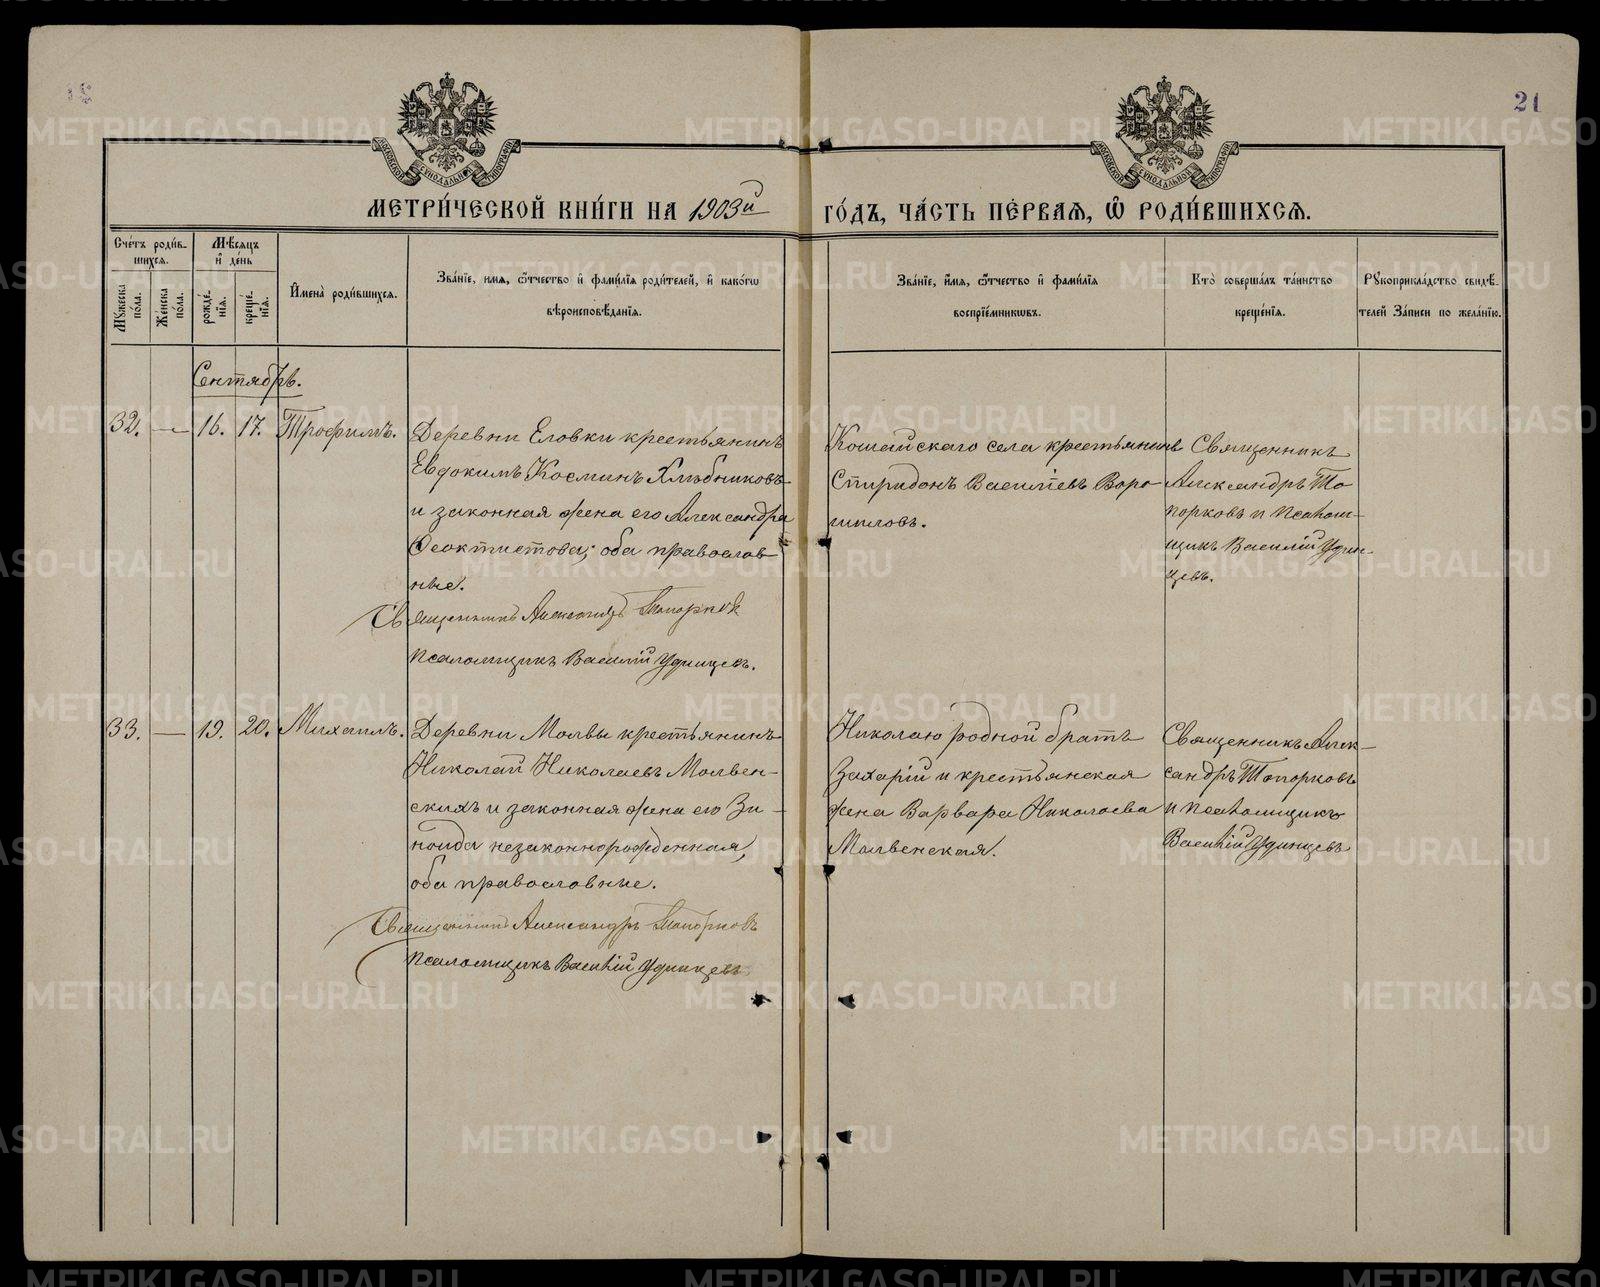 21
МЕТРИ́ЧЕСКОЙ КНИ́ГИ НА 1903й ГО́ДЪ, ЧА́СТЬ ПЕ́РВАѦ, Ѡ РОДИ́ВШИХСѦ.
Сче́тъ роди́в-
шихсѧ.
Мꙋжеска по́ла.
Же́нска по́ла.
Мѣ́сѧцъ
и҆ де́нь
рожде́-
нїѧ.
креще́-
нїѧ.
И҆мена̀ роди́вшихсѧ.
Зва́нїе, имѧ, ѻ҆́тчество и҆ фами́лїѧ роди́телей, и҆ како́гѡ
вѣроисповѣ́данїѧ.
Зва́нїе, и҆́мѧ, ѻ҆́тчество и҆ фами́лїѧ
воспрїе́мникѡвъ.
Кто̀ соверша́лъ та́инство
креще́нїѧ.
Рꙋкоприкла́дство свидѣ́-
телей За́писи по жела́нїю.
Сентябрь.
32. — 16. 17. Трофимъ.
Деревни Еловки крестьянинъ
Евдокимъ Космин Хлѣбниковъ
и законная жена его Александра
Феоктистова; оба православ
ные.
Священникъ Александръ Топорков
Псаломщикъ Василий Удинцевъ.
Кошайскаго села крестьянинъ
Спиридонъ Василіевъ Воро
шиловъ.
Священникъ
Александръ То
порковъ и псалом-
щикъ Василій Удин-
цевъ.
33. — 19. 20. Михаилъ.
Деревни Молвы крестьянинъ
Николай Николаевъ Молвен-
скихъ и законная жена его Зи-
наида незаконнорожденная,
оба православные.
Священникъ Александръ Топорковъ
Псаломщикъ Василій Удинцевъ
Николаю родной братъ
Захарій и крестьянская
жена Варвара Николаева
Молвенская.
Священникъ Алек-
сандръ Топорковъ
и псаломщикъ
Василій Удинцевъ
METRIKI.GASO-URAL.RU